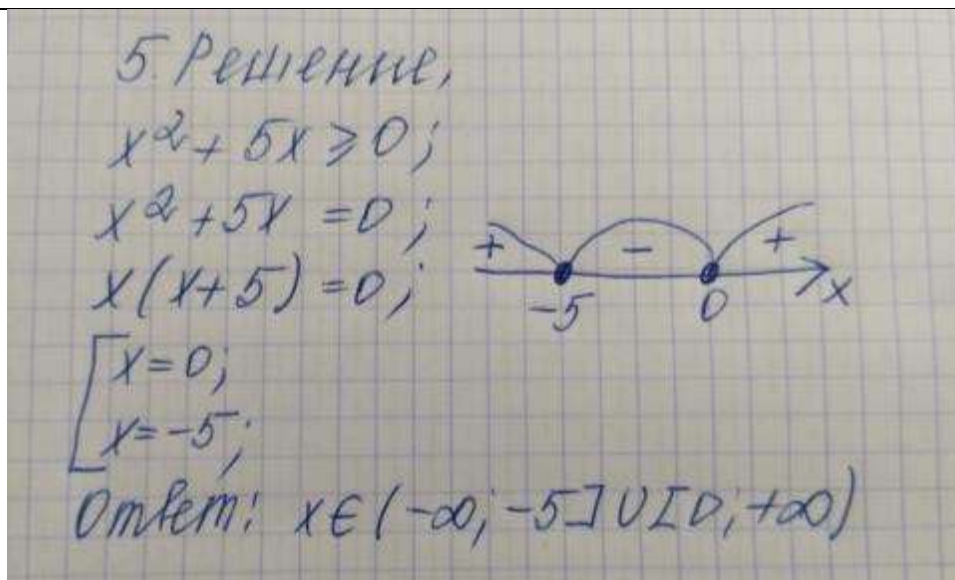 5. Решение,
x² + 5x ⩾ 0;
x² + 5x = 0;
x(x+5) = 0;
+ − +
-5 0 x
x = 0;
x = -5;
Ответ: x ∈ (-∞; -5] U [0; +∞)